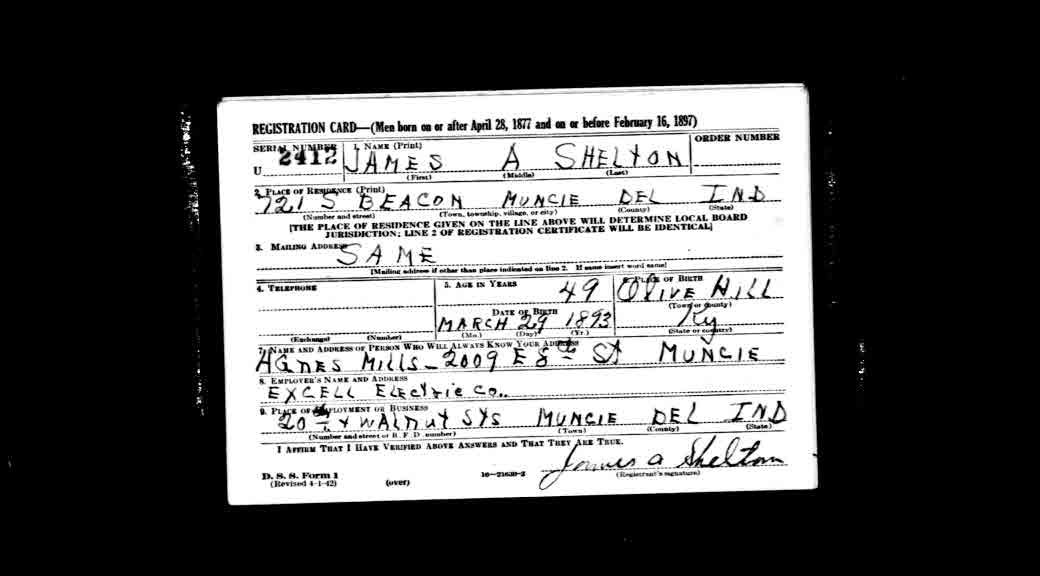 REGISTRATION CARD—(Men born on or after April 28, 1877 and on or before February 16, 1897)
SERIAL NUMBER 1. NAME (Print) ORDER NUMBER
U 2412 JAMES A SHELTON
(First) (Middle) (Last)
2. PLACE OF RESIDENCE (Print)
721 S BEACON MUNCIE DEL IND
(Number and street) (Town, township, village, or city) (County) (State)
[THE PLACE OF RESIDENCE GIVEN ON THE LINE ABOVE WILL DETERMINE LOCAL BOARD
JURISDICTION; LINE 2 OF REGISTRATION CERTIFICATE WILL BE IDENTICAL]
3. MAILING ADDRESS
SAME
[Mailing address if other than place indicated on line 2. If same insert word same]
4. TELEPHONE 5. AGE IN YEARS 6. PLACE OF BIRTH
49 OLIVE HILL
DATE OF BIRTH (Town or county)
MARCH 29 1893 Ky
(Exchange) (Number) (Mo.) (Day) (Yr.) (State or country)
7. NAME AND ADDRESS OF PERSON WHO WILL ALWAYS KNOW YOUR ADDRESS
AGNES MILLS - 2009 E 8th ST MUNCIE
8. EMPLOYER'S NAME AND ADDRESS
EXCELL ELECtRic Co..
9. PLACE OF EMPLOYMENT OR BUSINESS
20th + WALNUT STS MUNCIE DEL IND
(Number and street or R. F. D. number) (Town) (County) (State)
I AFFIRM THAT I HAVE VERIFIED ABOVE ANSWERS AND THAT THEY ARE TRUE.
James A Shelton
D. S. S. Form 1 16—21630-2 (Registrant's signature)
(Revised 4-1-42) (over)